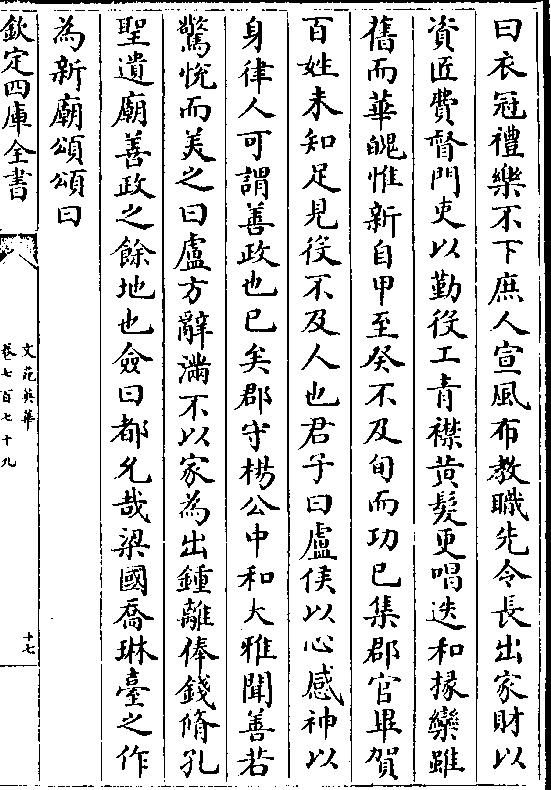 曰衣冠禮樂不下庶人宣風布教職先令長出家財以
資匠費督門吏以勤役工青襟黄髮更唱迭和掾欒雖
舊而華𩲸惟新自甲至癸不及旬而功已集郡官畢賀
百姓未知足見役不及人也君子曰盧侯以心感神以
身律人可謂善政也已矣郡守楊公中和大雅聞善若
驚悅而美之曰盧方辭滿不以家為出鍾離俸錢脩孔
聖遺廟善政之餘地也僉曰都允哉梁國喬琳臺之作
為新廟頌頌曰
欽定四庫全書
文苑英華
卷七百七十九
十七